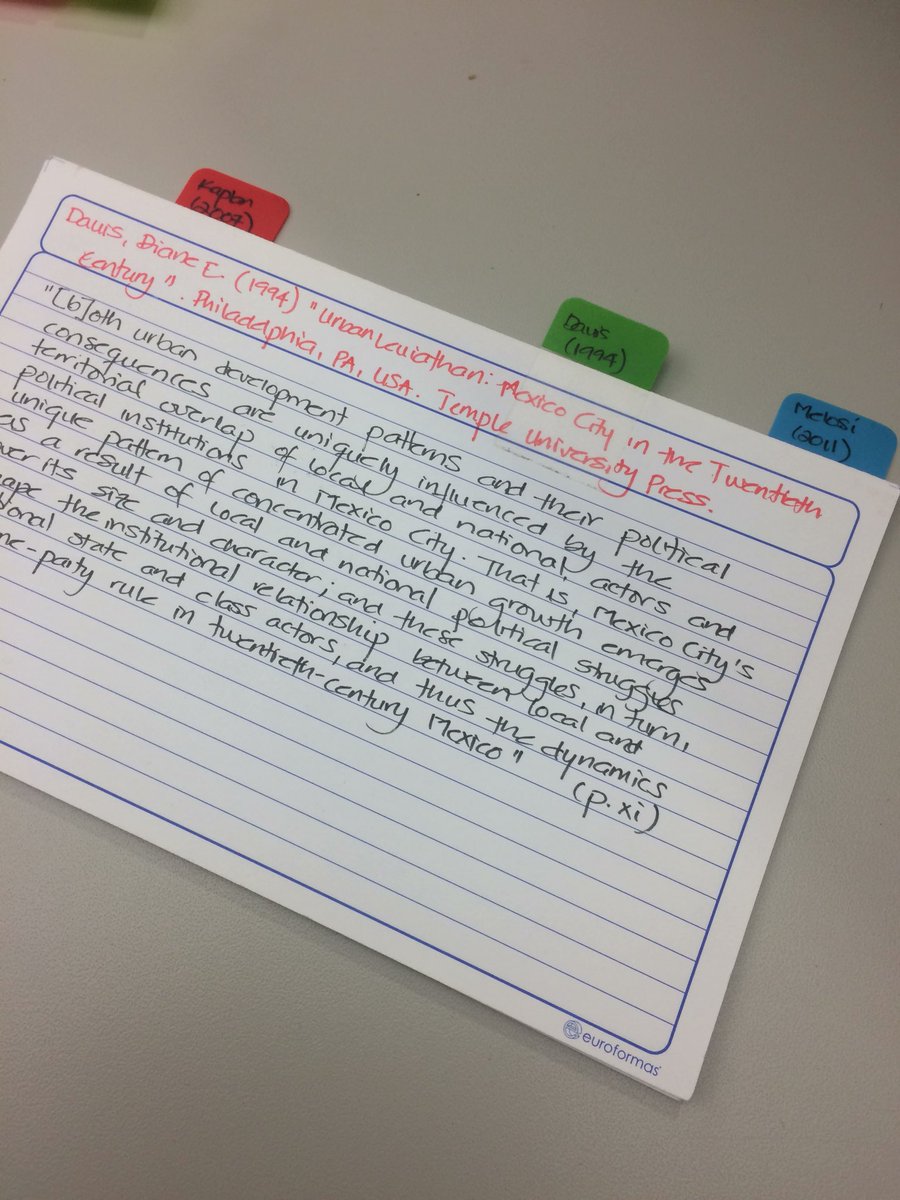 Kaplan
(2007)
Davis
(1994)
Melosi
(2011)
Davis, Diane E. (1994) "Urban Leviathan: Mexico City in the Twentieth
Century". Philadelphia, PA, USA. Temple University Press.
"[b]oth urban development patterns and their political
consequences are uniquely influenced by the
territorial overlap of local and national actors and
political institutions in Mexico City. That is, Mexico City's
unique pattern of concentrated urban growth emerges
as a result of local and national political struggles
over its size and character; and these struggles, in turn,
the institutional relationship between local and
state and class actors, and thus the dynamics
party rule in twentieth-century Mexico"
(p. xi)
euroformas